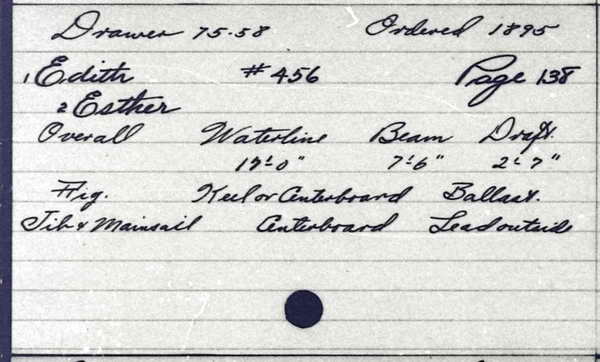 Drawer 75-58 Ordered 1895
1 Edith #456 Page 138
2 Esther
Overall Waterline Beam Draft.
17'-0" 7'-6" 2'-7"
Fig. Keel or Centerboard Ballast.
Jib & Mainsail Centerboard Lead outside